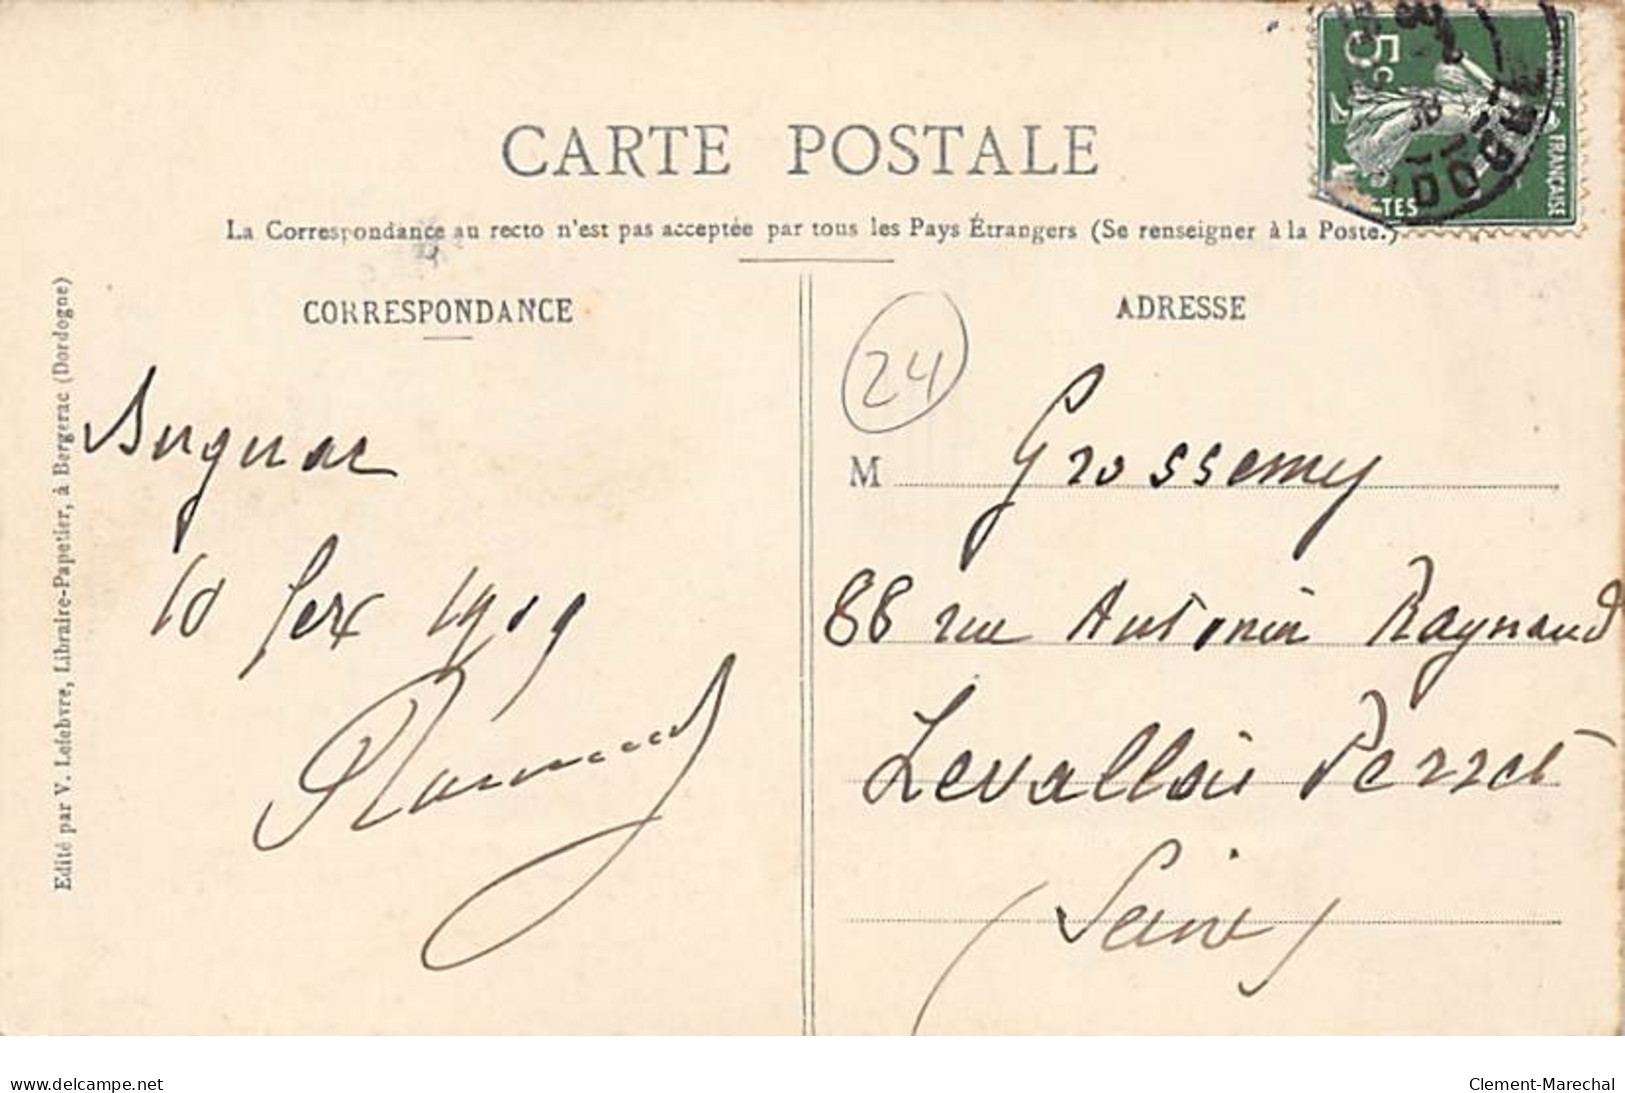 CARTE POSTALE
La Correspondance au recto n'est pas acceptée par tous les Pays Étrangers (Se renseigner à la Poste.)
5c
FRANÇAISE
CORRESPONDANCE
10 fev 1909
Edité par V. Lefebvre, Libraire-Papetier, à Bergerac (Dordogne)
ADRESSE
24
M Grossemy
88 rue Antonin Raynaud
Levallois Perret
(Seine)
www.delcampe.net
Clement-Marechal